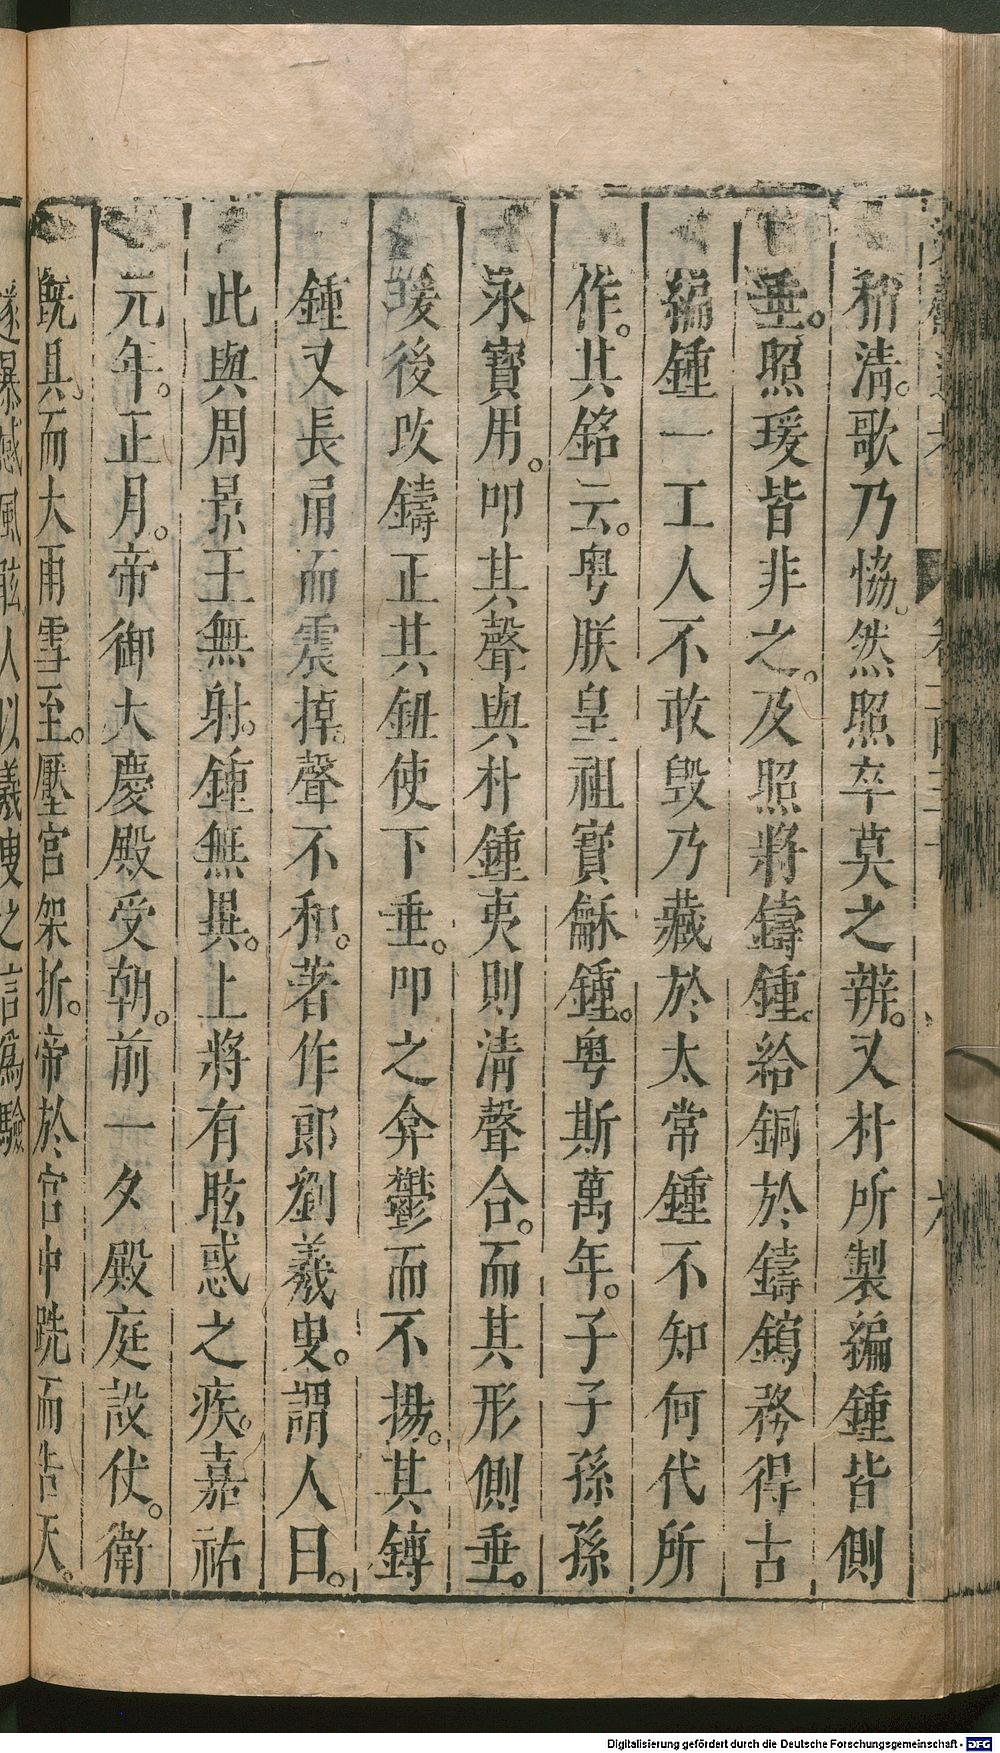 稍清。歌乃恊。然照卒莫之辨。又朴所製編鍾皆側
垂。照瑗皆非之。及照將鑄鍾。給銅於鑄鎢務得古
編鍾一工人不敢毀乃藏於太常鍾不知何代所
作。其銘云。粤朕皇祖寶龢鍾。粤斯萬年。子子孫孫
永寶用。叩其聲與朴鍾夷則清聲合。而其形側垂。
瑗後改鑄正其鈕使下垂。叩之弇鬱而不揚。其鎛
鍾又長甬而震掉。聲不和。著作郎劉羲叟。謂人曰。
此與周景王無射。鍾無異。上將有眩惑之疾。嘉祐
元年。正月。帝御大慶殿受朝。前一夕殿庭設仗。衛
既具。而大雨雪至。壓宮架折。帝於宮中跣而告天。
遂暴感風眩。人以羲叟之言爲驗
Digitalisierung gefördert durch die Deutsche Forschungsgemeinschaft - DFG